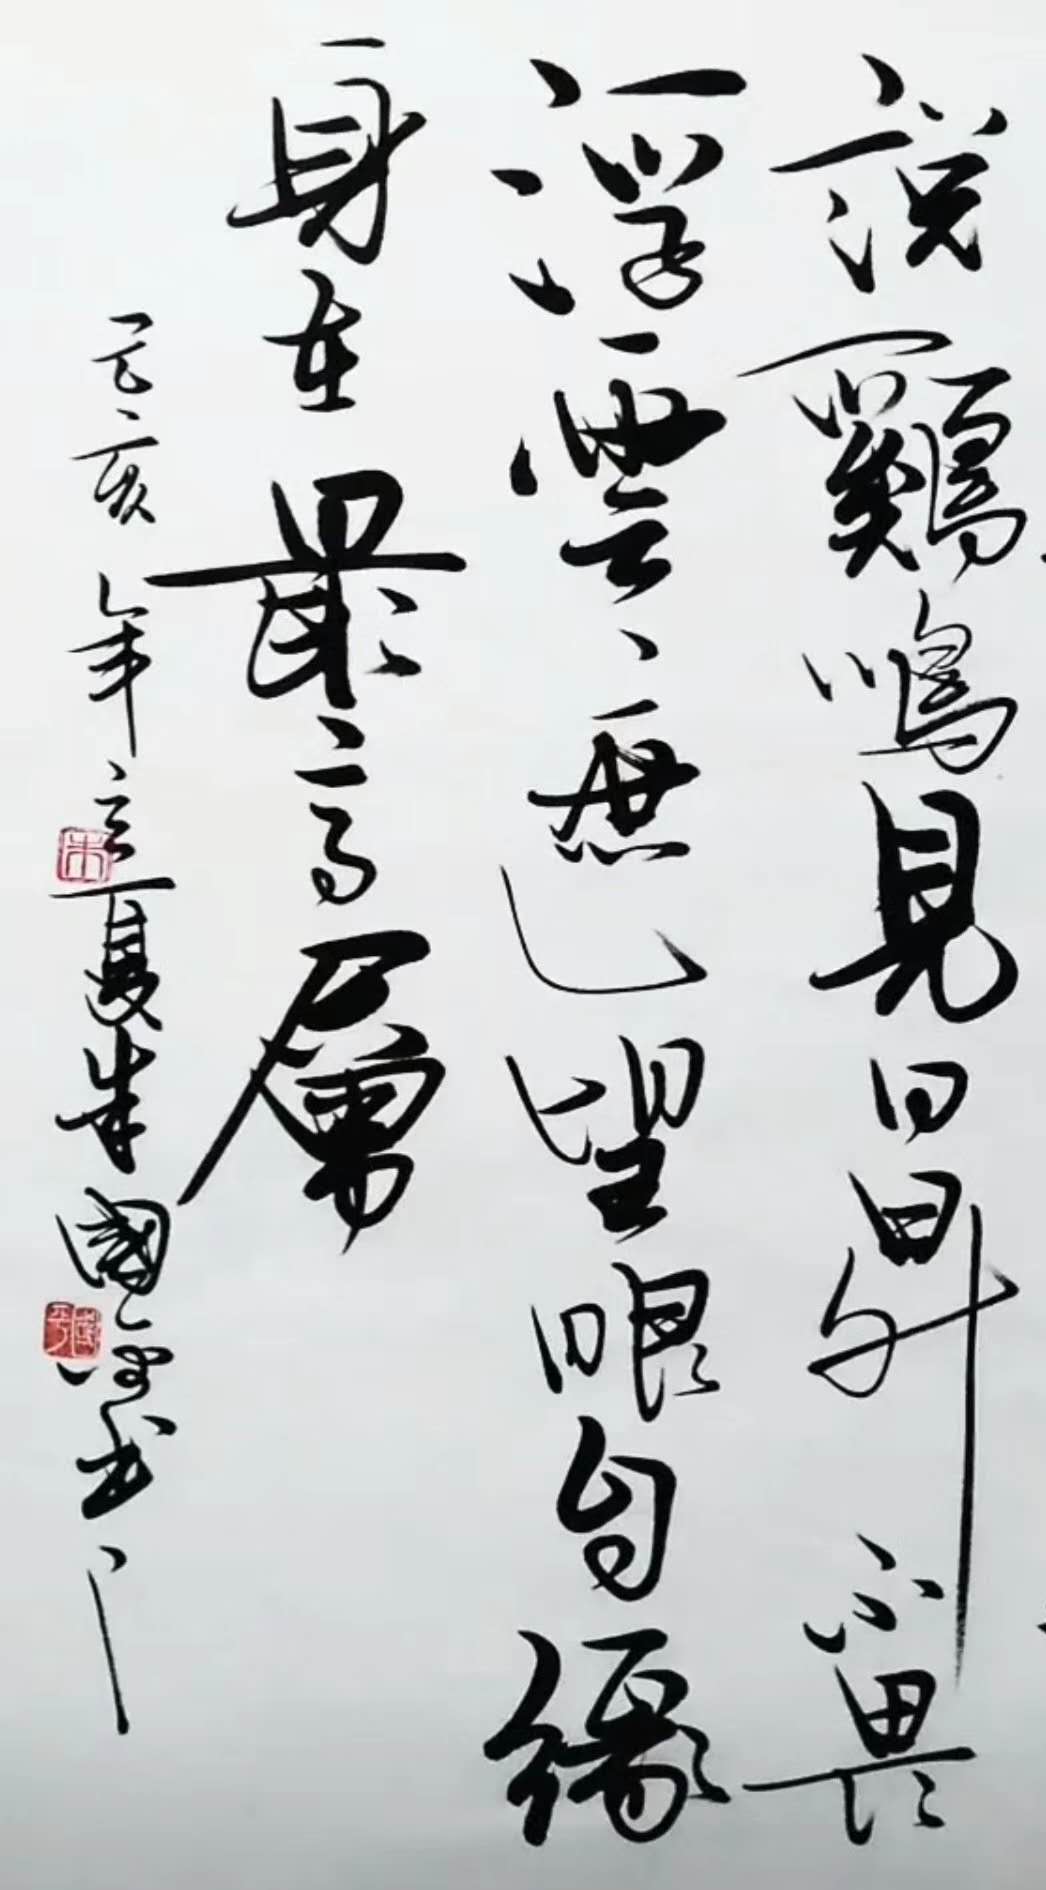 說鷄鳴見日昇不畏
浮雲遮望眼自緣
身在最高層
己亥年立夏朱國平书
朱